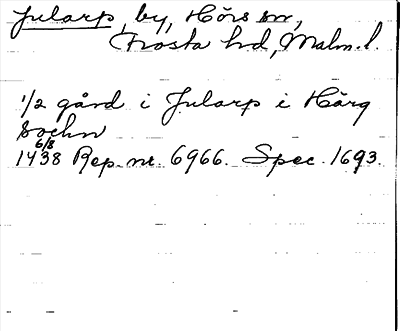 Jularp, by, Hörs sn,
Frosta hd, Malm. l.
1/2 gård i Jularp i Hörg
sochn
6/8
1438 Rep. nr. 6966. Spec. 1693.